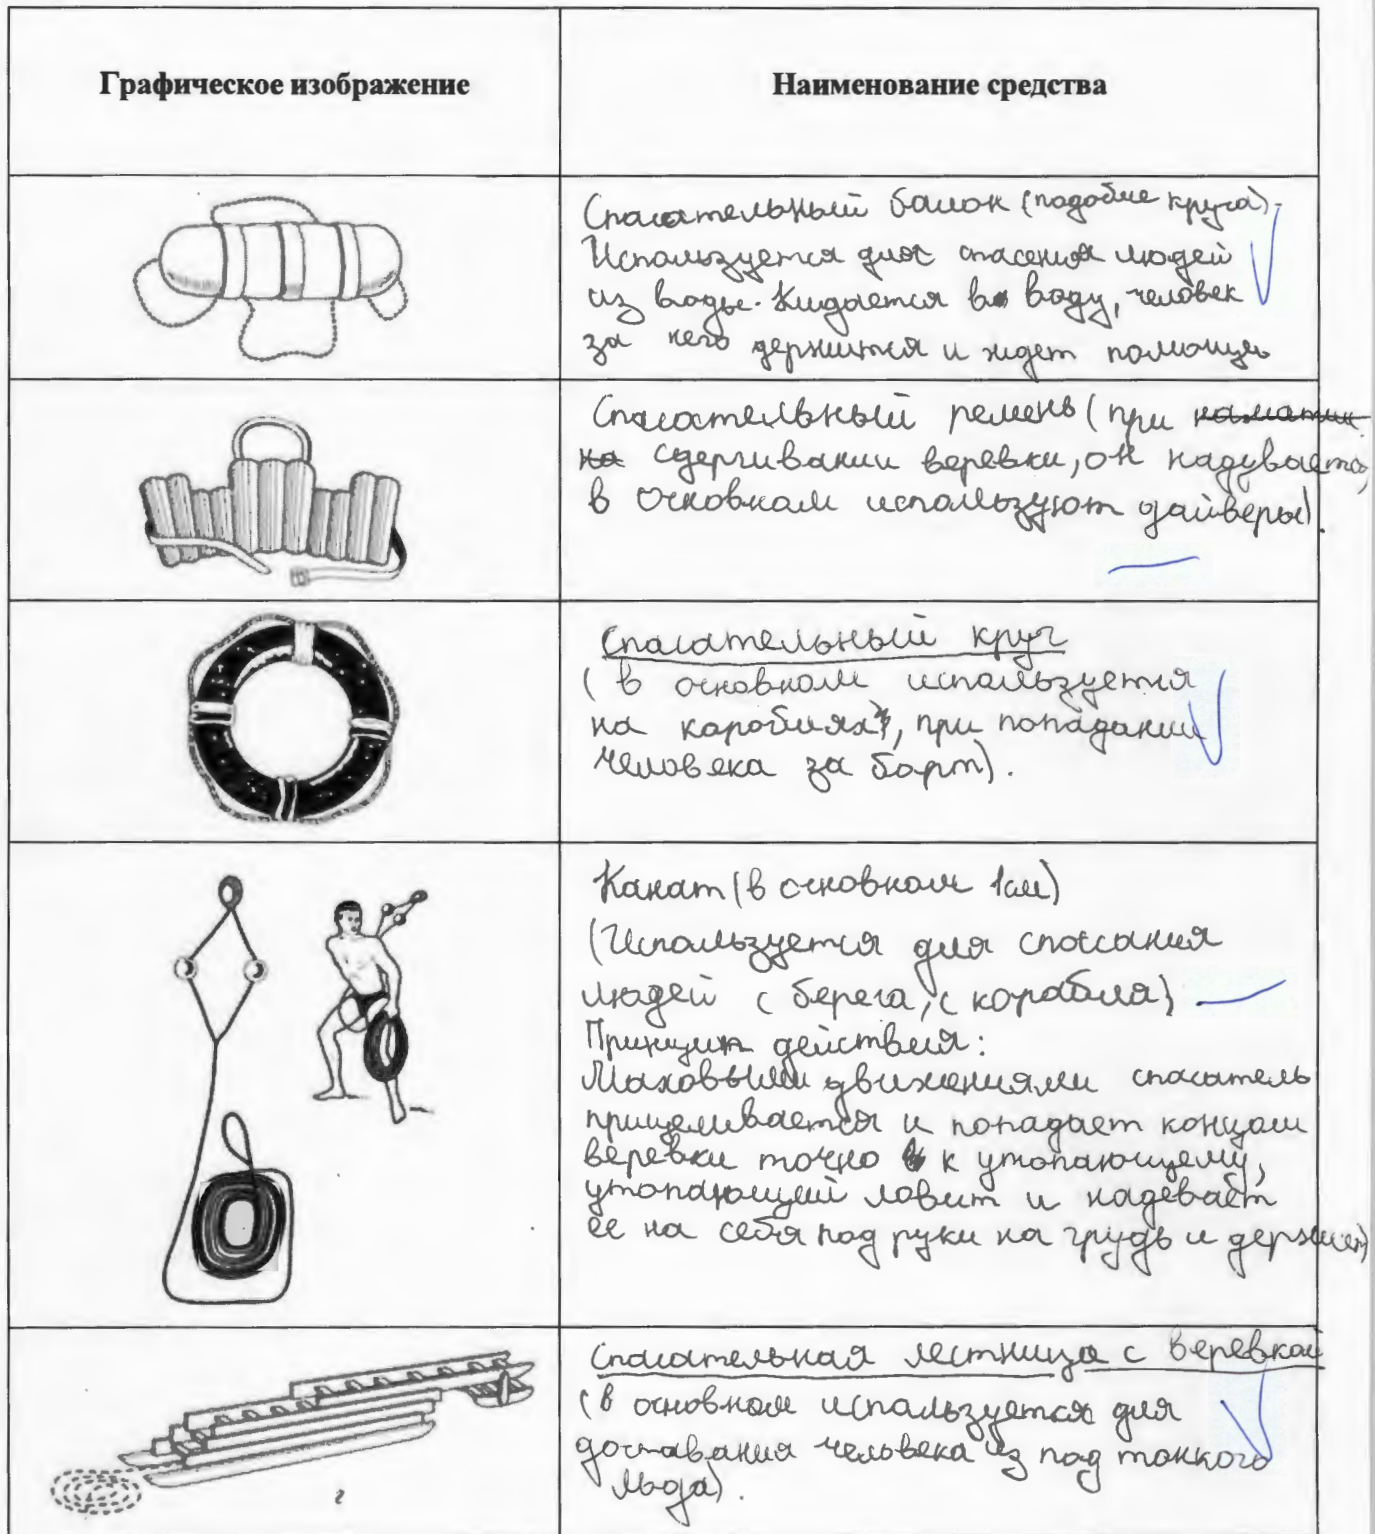 Графическое изображение
Наименование средства
Спасательный балон (подобие круга).
Используется для спасения людей
из воды. Кидается в воду, человек
за него держится и ждет помощи
Спасательный ремень (при
сдергивании веревки, он надувается,
в основном используют дайверы).
Спасательный круг
(в основном используется
на кораблях, при попадании
человека за борт).
Канат (в основном 1см)
(Используется для спасания
людей с берега, с корабля)
Принцип действия:
Маховыми движениями спасатель
прицеливается и попадает концом
веревки точно к утопающему,
утопающий ловит и надевает
ее на себя под руки на грудь и держит)
Спасательная лестница с веревкой
(в основном используется для
доставания человека из под тонкого
льда).
г